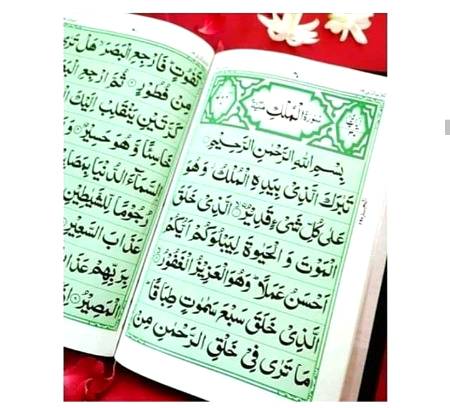 سُوْرَةُ الْمُلْكِ
بِسْمِ اللّٰهِ الرَّحْمٰنِ الرَّحِيْمِ
تَبٰرَكَ الَّذِيْ بِيَدِهِ الْمُلْكُ وَهُوَ
عَلٰى كُلِّ شَيْءٍ قَدِيْرُ ۙ الَّذِيْ خَلَقَ
الْمَوْتَ وَ الْحَيٰوةَ لِيَبْلُوَكُمْ اَيُّكُمْ
اَحْسَنُ عَمَلًا ؕ وَهُوَ الْعَزِيْزُ الْغَفُوْرُ
الَّذِيْ خَلَقَ سَبْعَ سَمٰوٰتٍ طِبَاقًا ؕ
مَا تَرٰى فِيْ خَلْقِ الرَّحْمٰنِ مِنْ
تَفٰوُتٍ ؕ فَارْجِعِ الْبَصَرَ هَلْ تَرٰى
مِنْ فُطُوْرٍ ثُمَّ ارْجِعِ
كَرَّتَيْنِ يَنْقَلِبْ اِلَيْكَ
خَاسِئًا وَّهُوَ حَسِيْرٌ
السَّمَآءَ الدُّنْيَا
رُجُوْمًا لِّلشَّيٰطِيْنِ
عَذَابَ السَّعِيْرِ
بِرَبِّهِمْ
الْمَصِيْرُ